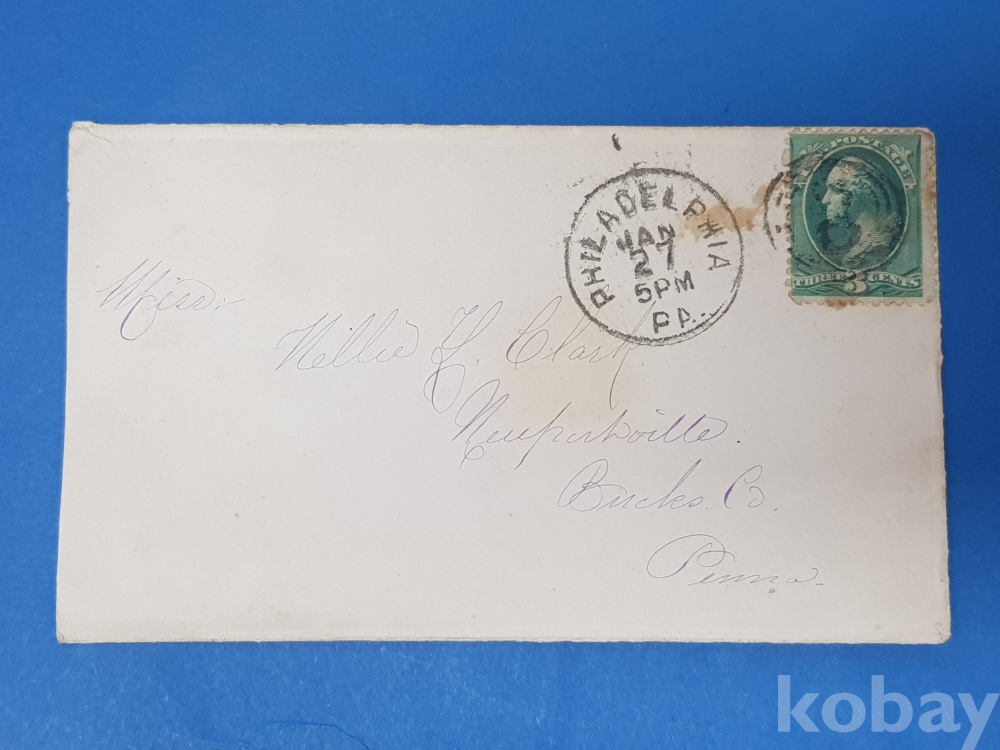 POSTAGE
THREE 3 CENTS
PHILADELPHIA
JAN
27
5PM
PA.
Miss.
Nellie Y. Clark
Newportville.
Bucks. Co.
Penna.
kobay